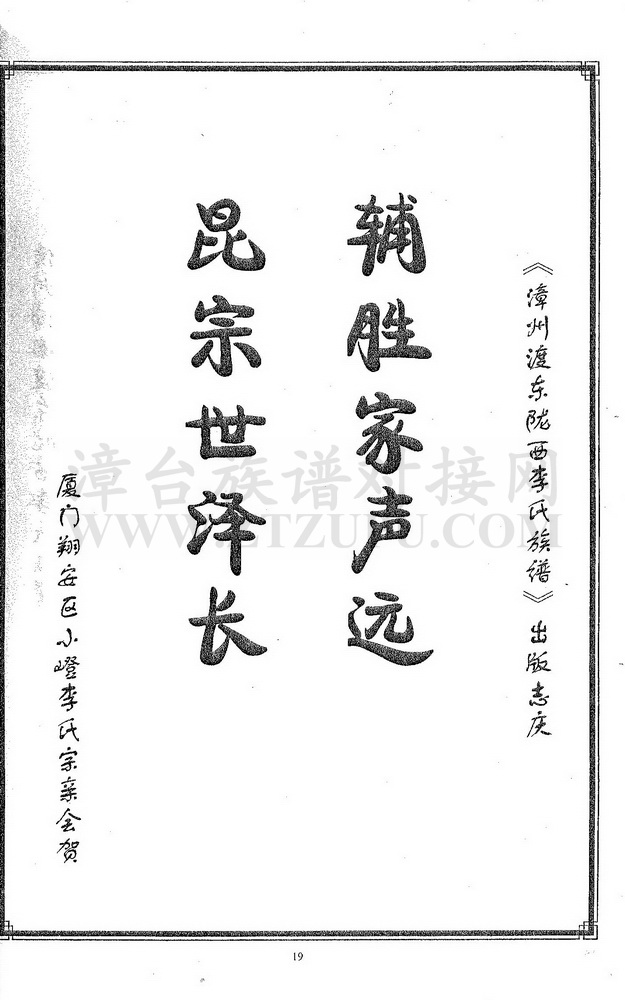 《漳州渡东陇西李氏族谱》出版志庆
辅胜家声远
昆宗世泽长
厦门翔安区小嶝李氏宗亲会贺
漳台族谱对接网
WWW.ZTZUPU.COM
19